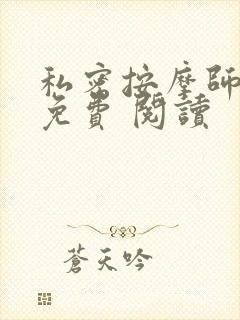 私密按摩師
免費 閱讀
蒼天吟